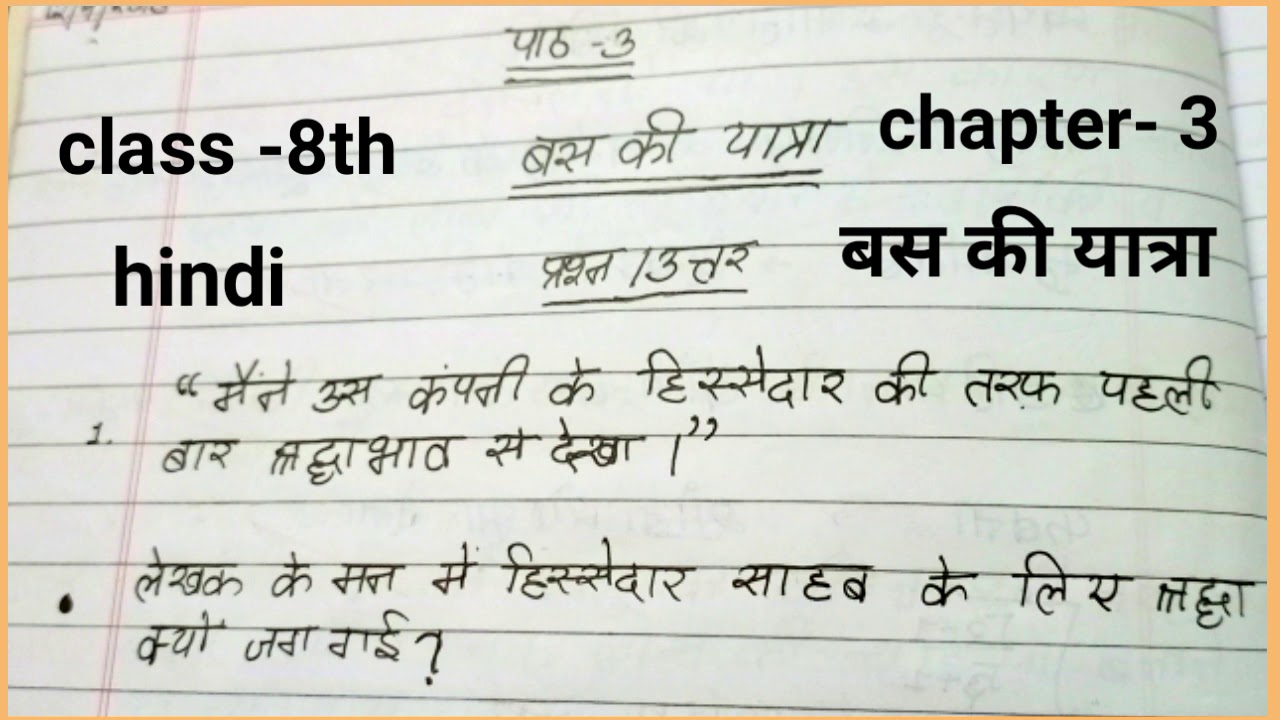 पाठ -3
class -8th
chapter- 3
बस की यात्रा
hindi
बस की यात्रा
प्रश्न / उत्तर
“मैंने उस कंपनी के हिस्सेदार की तरफ़ पहली
1. बार श्रद्धाभाव से देखा।”
• लेखक के मन में हिस्सेदार साहब के लिए श्रद्धा
क्यों जग गई?